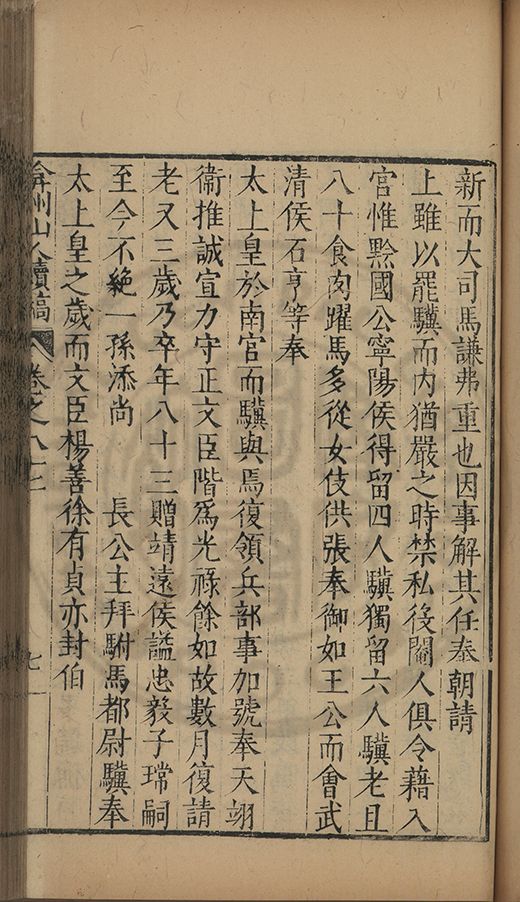 新而大司馬謙弗重也因事解其任奉朝請
上雖以罷驥而内猶嚴之時禁私役閹人俱令藉入
官惟黔國公寧陽侯得留四人驥獨留六人驥老且
八十食肉躍馬多從女伎供張奉御如王公而會武
清侯石亨等奉
太上皇於南宫而驥與焉復領兵部事加號奉天翊
衞推誠宣力守正文臣階爲光禄餘如故數月復請
老又三歲乃卒年八十三贈靖遠侯謚忠毅子瑺嗣
至今不絶一孫添尚 長公主拜駙馬都尉驥奉
太上皇之歲而文臣楊善徐有貞亦封伯
弇州山人續稿 卷之八十七 七